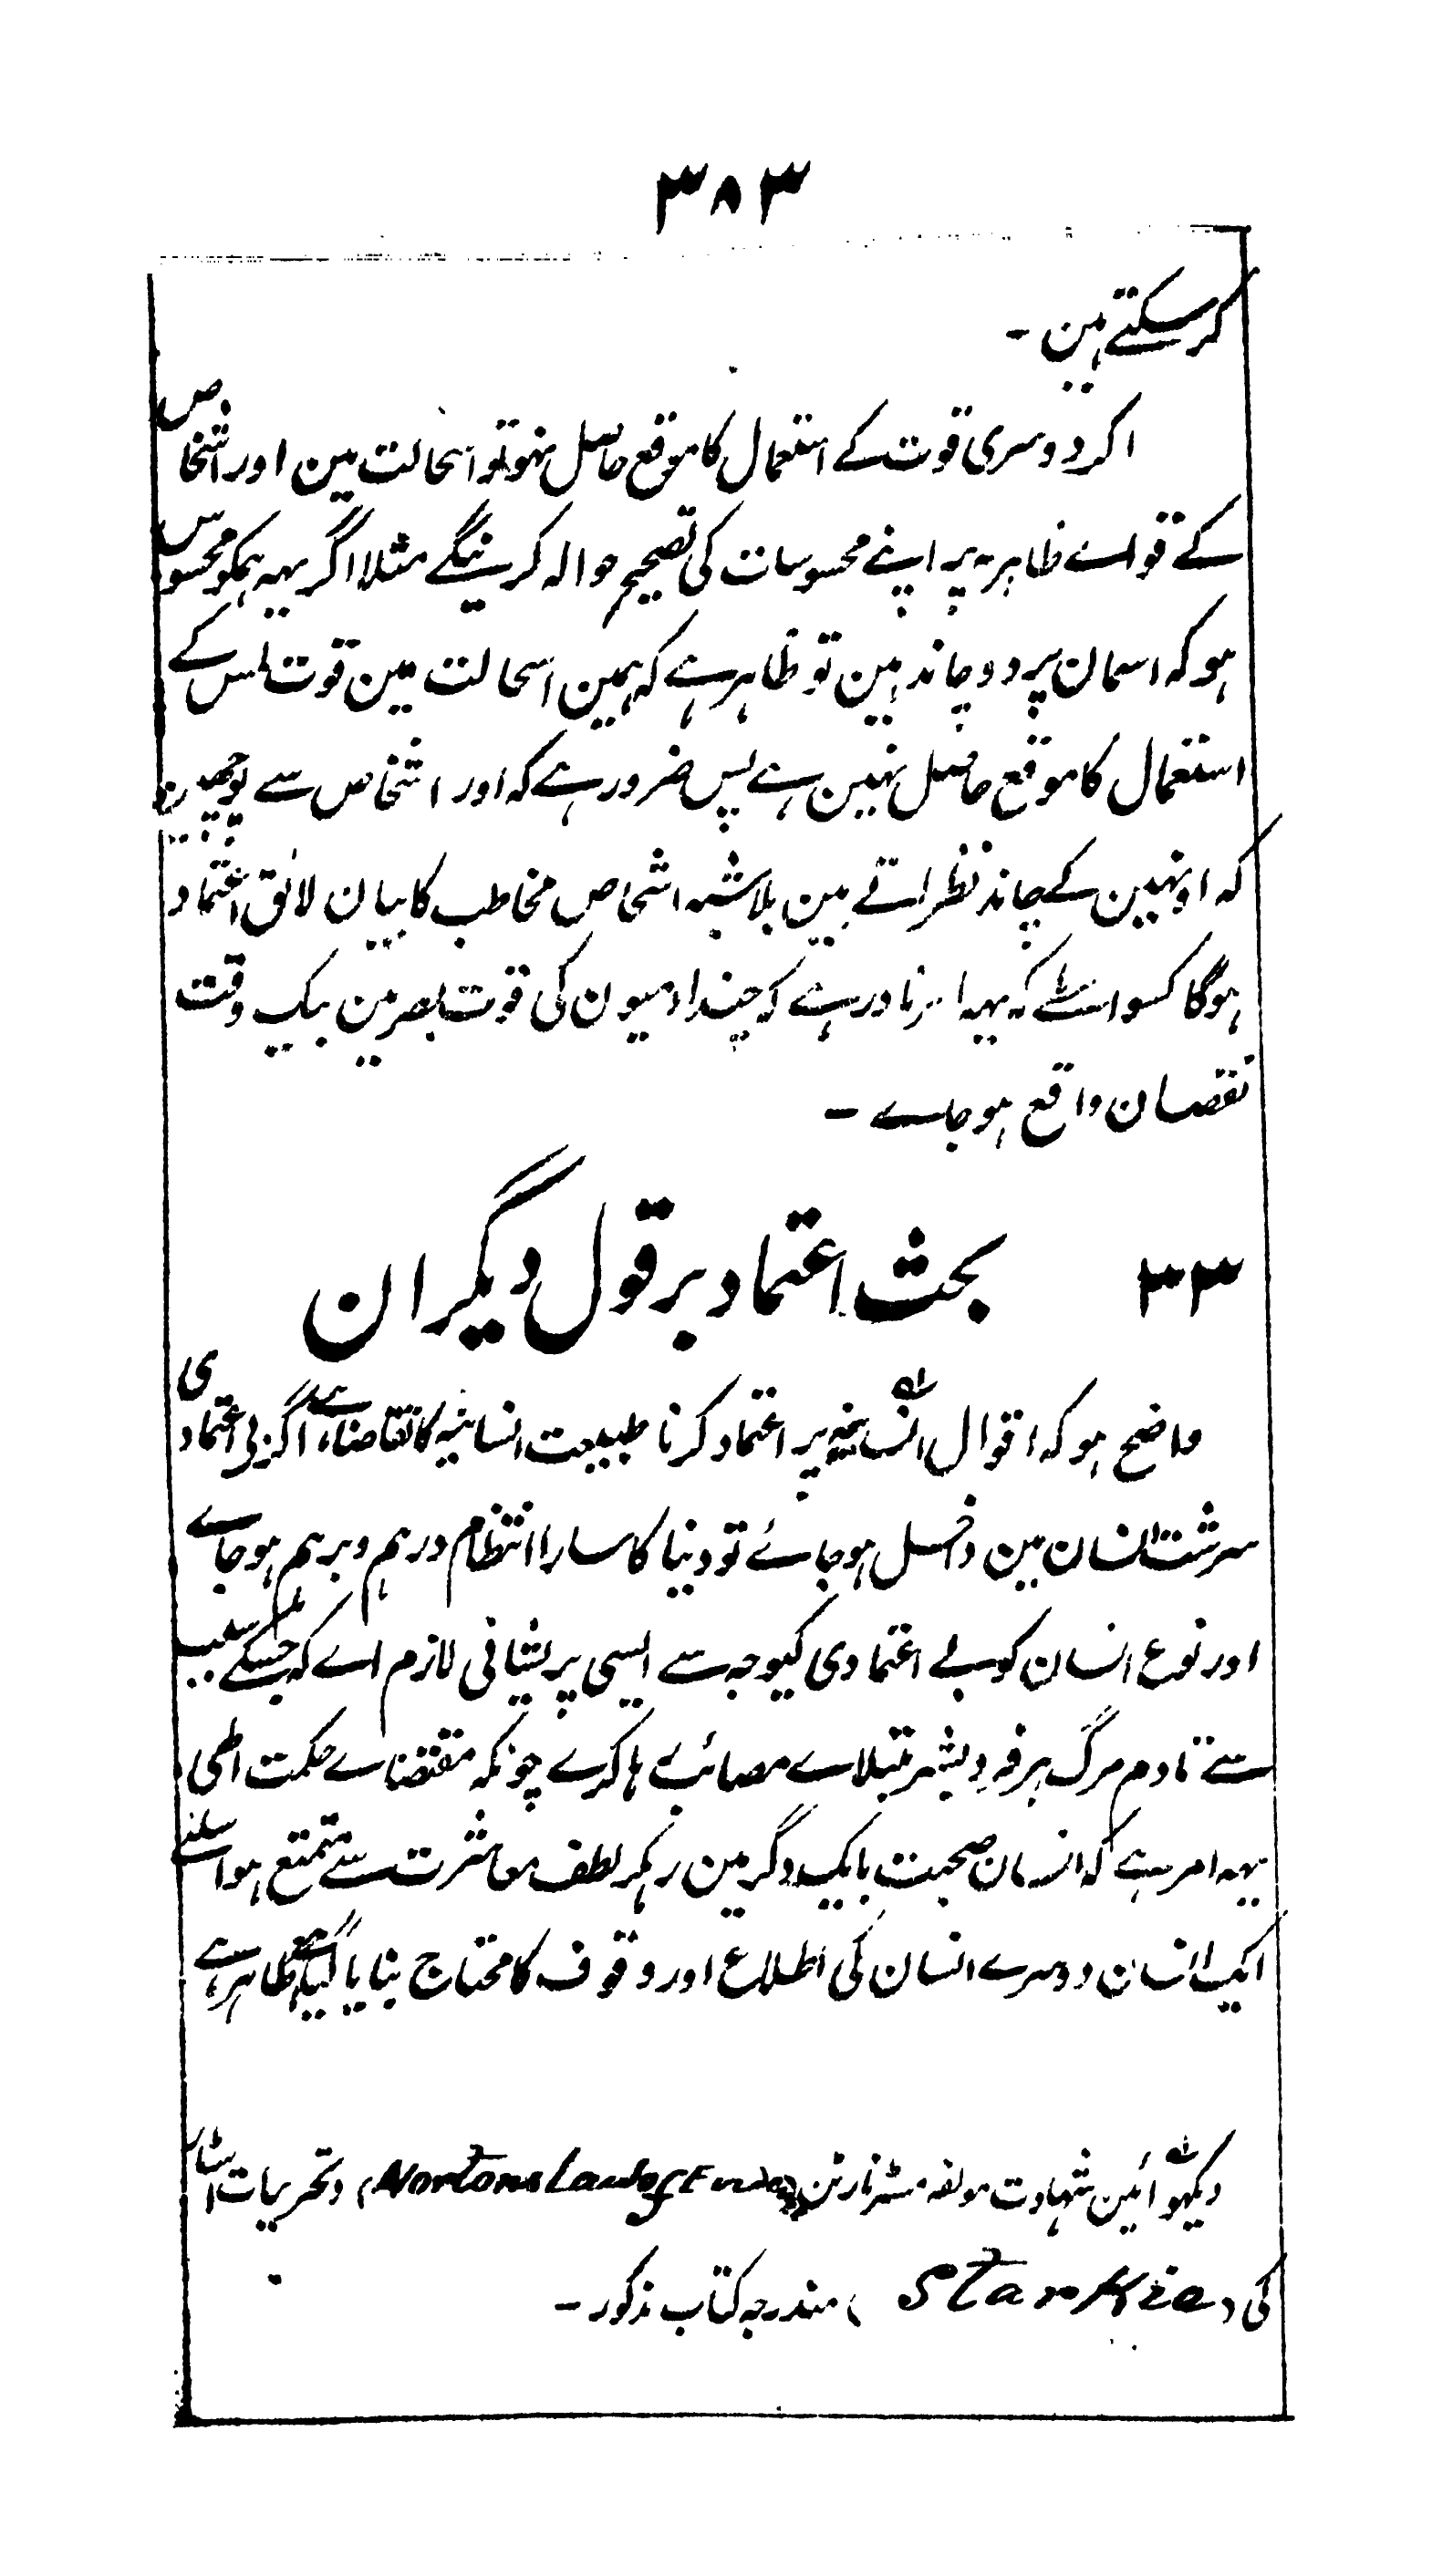 ۳۸۳
کرسکتے ہین ۔
اکر دوسری قوت کے استعمال کا موقع حاصل نہو تو اسحالت مین اور اشخاص
کے قواے ظاہرہ پر اپنے محسوسات کی تصحیح حوالہ کرینگے مثلا اگر یہہ ہمکو محسوس
ہو کہ اسمان پر دو چاند ہین تو ظاہر ہے کہ ہمین اسحالت مین قوت لمس کے
استعمال کا موقع حاصل نہین ہے پس ضرور ہے کہ اور اشخاص سے پوچھین
کہ اونہین کے چاند نظر اتے ہین بلاشبہ اشخاص مخاطب کا بیان لائق اعتماد
ہوگا کسواسطے کہ یہہ امر نادر ہے کہ چند ادمیون کی قوت بصر مین بیک وقت
نقصان واقع ہو جاے ۔
۳۳ بحث اعتماد بر قول دیگران
واضح ہو کہ اقوال انسانیہ پر اعتماد کرنا طبیعت انسانیہ کا تقاضا ہے اگر بی اعتمادی
سرشت انسان مین داخل ہو جائے تو دنیا کا سارا انتظام درہم و برہم ہو جاے
اور نوع انسان کو بے اعتمادی کیوجہ سے ایسی پریشانی لازم اے کہ جسکے سبب
سے تادم مرگ ہر فرد بشر مبتلاے مصائب رہا کرے چونکہ مقتضاے حکمت الٰہی
یہہ امر ہے کہ انسان صحبت بایکدگر مین رہکر لطف معاشرت سے متمتع ہو اسلئے
ایک انسان دوسرے انسان کی اطلاع اور وقوف کا محتاج بنایا گیا ہے ظاہر ہے
دیکھو آئین شہادت مولفہ مسٹر نارٹن (Nortons Law of Evidence) و تحریرات اسٹار
کی (Starkie) مندرجہ کتاب مذکور ۔